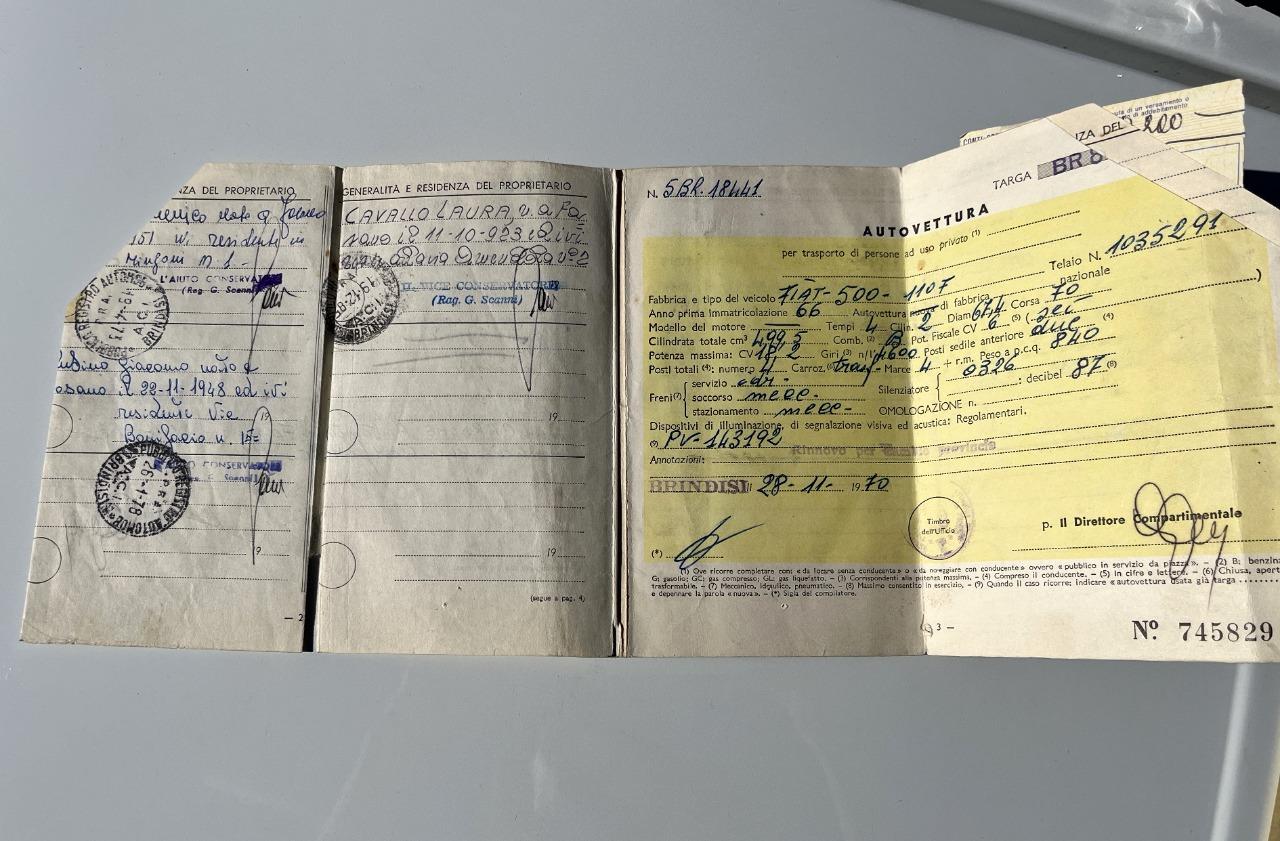 ZA DEL PROPRIETARIO
151 ivi residente in
L'AIUTO CONSERVAT
(Rag. G. Scanni)
PUBBLICO REGISTRO AUTOMOB
BRINDISI
Giacomo nato a
22-11-1948 ed ivi
residente Via
Bonifacio n. 15=
19
CONSERVATO
G. Scanni)
PUBBLICO REGISTRO AUTOMOB
26-1-78
19
— 2
GENERALITÀ E RESIDENZA DEL PROPRIETARIO
CAVALLO LAURA, n. a Fa=
sano il 11-10-923 ed ivi
IL VICE CONSERVATORE
(Rag. G. Scanni)
BRINDISI
19
19
(segue a pag. 4)
N. 5BR. 18441
TARGA BR 8
ZA DEL
AUTOVETTURA
per trasporto di persone ad uso privato (1)
Telaio N. 1035291
Fabbrica e tipo del veicolo FIAT-500-110F
Anno prima immatricolazione 66 Autovettura nuova di fabbrica nazionale
Modello del motore — Tempi 4 Cilin. 2 Diam. 67,4 Corsa 70
Cilindrata totale cm³ 499,5 Comb. (2) B Pot. Fiscale CV 6 (5) (sei)
Potenza massima: CV 18,2 Giri (3) n/1' 4600 Posti sedile anteriore due (4)
Posti totali (4): numero 4 Carroz. (6) tras - Marce 4 + r.m. Peso a p.c.q. 840
Freni (7) servizio idr. -
soccorso mecc -
stazionamento mecc -
Silenziatore 0326 : decibel 87 (8)
OMOLOGAZIONE n.
Dispositivi di illuminazione, di segnalazione visiva ed acustica: Regolamentari.
(9) PV-143192
Annotazioni: Rinnovo per cambio provincia
BRINDISI li 28-11-1970
Timbro dell'Ufficio
p. Il Direttore Compartimentale
(*)
(1) Ove ricorre completare con: «da locare senza conducente» o «da noleggiare con conducente» ovvero «pubblico in servizio da piazza». – (2) B: benzina
G: gasolio; GC: gas compresso; GL: gas liquefatto. – (3) Corrispondenti alla potenza massima. – (4) Compreso il conducente. – (5) In cifre e lettere. – (6) Chiusa, apert
trasformabile. – (7) Meccanico, idraulico, pneumatico. – (8) Massimo consentito in esercizio. – (9) Quando il caso ricorre; indicare «autovettura usata già targa
e depennare la parola «nuova». – (*) Sigla del compilatore.
3 –
Nº 745829